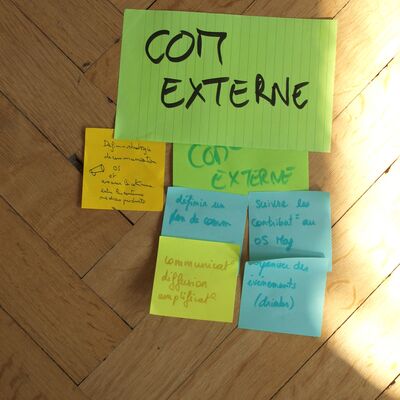 COM
EXTERNE
COM°
EXTERNE
Définir stratégie
de communication
OS
et
définir un
plan de comm
Suivre les
contribut° au
OS Mag
communicat°
diffusion
amplificat°
organiser des
évènements
(drinks)